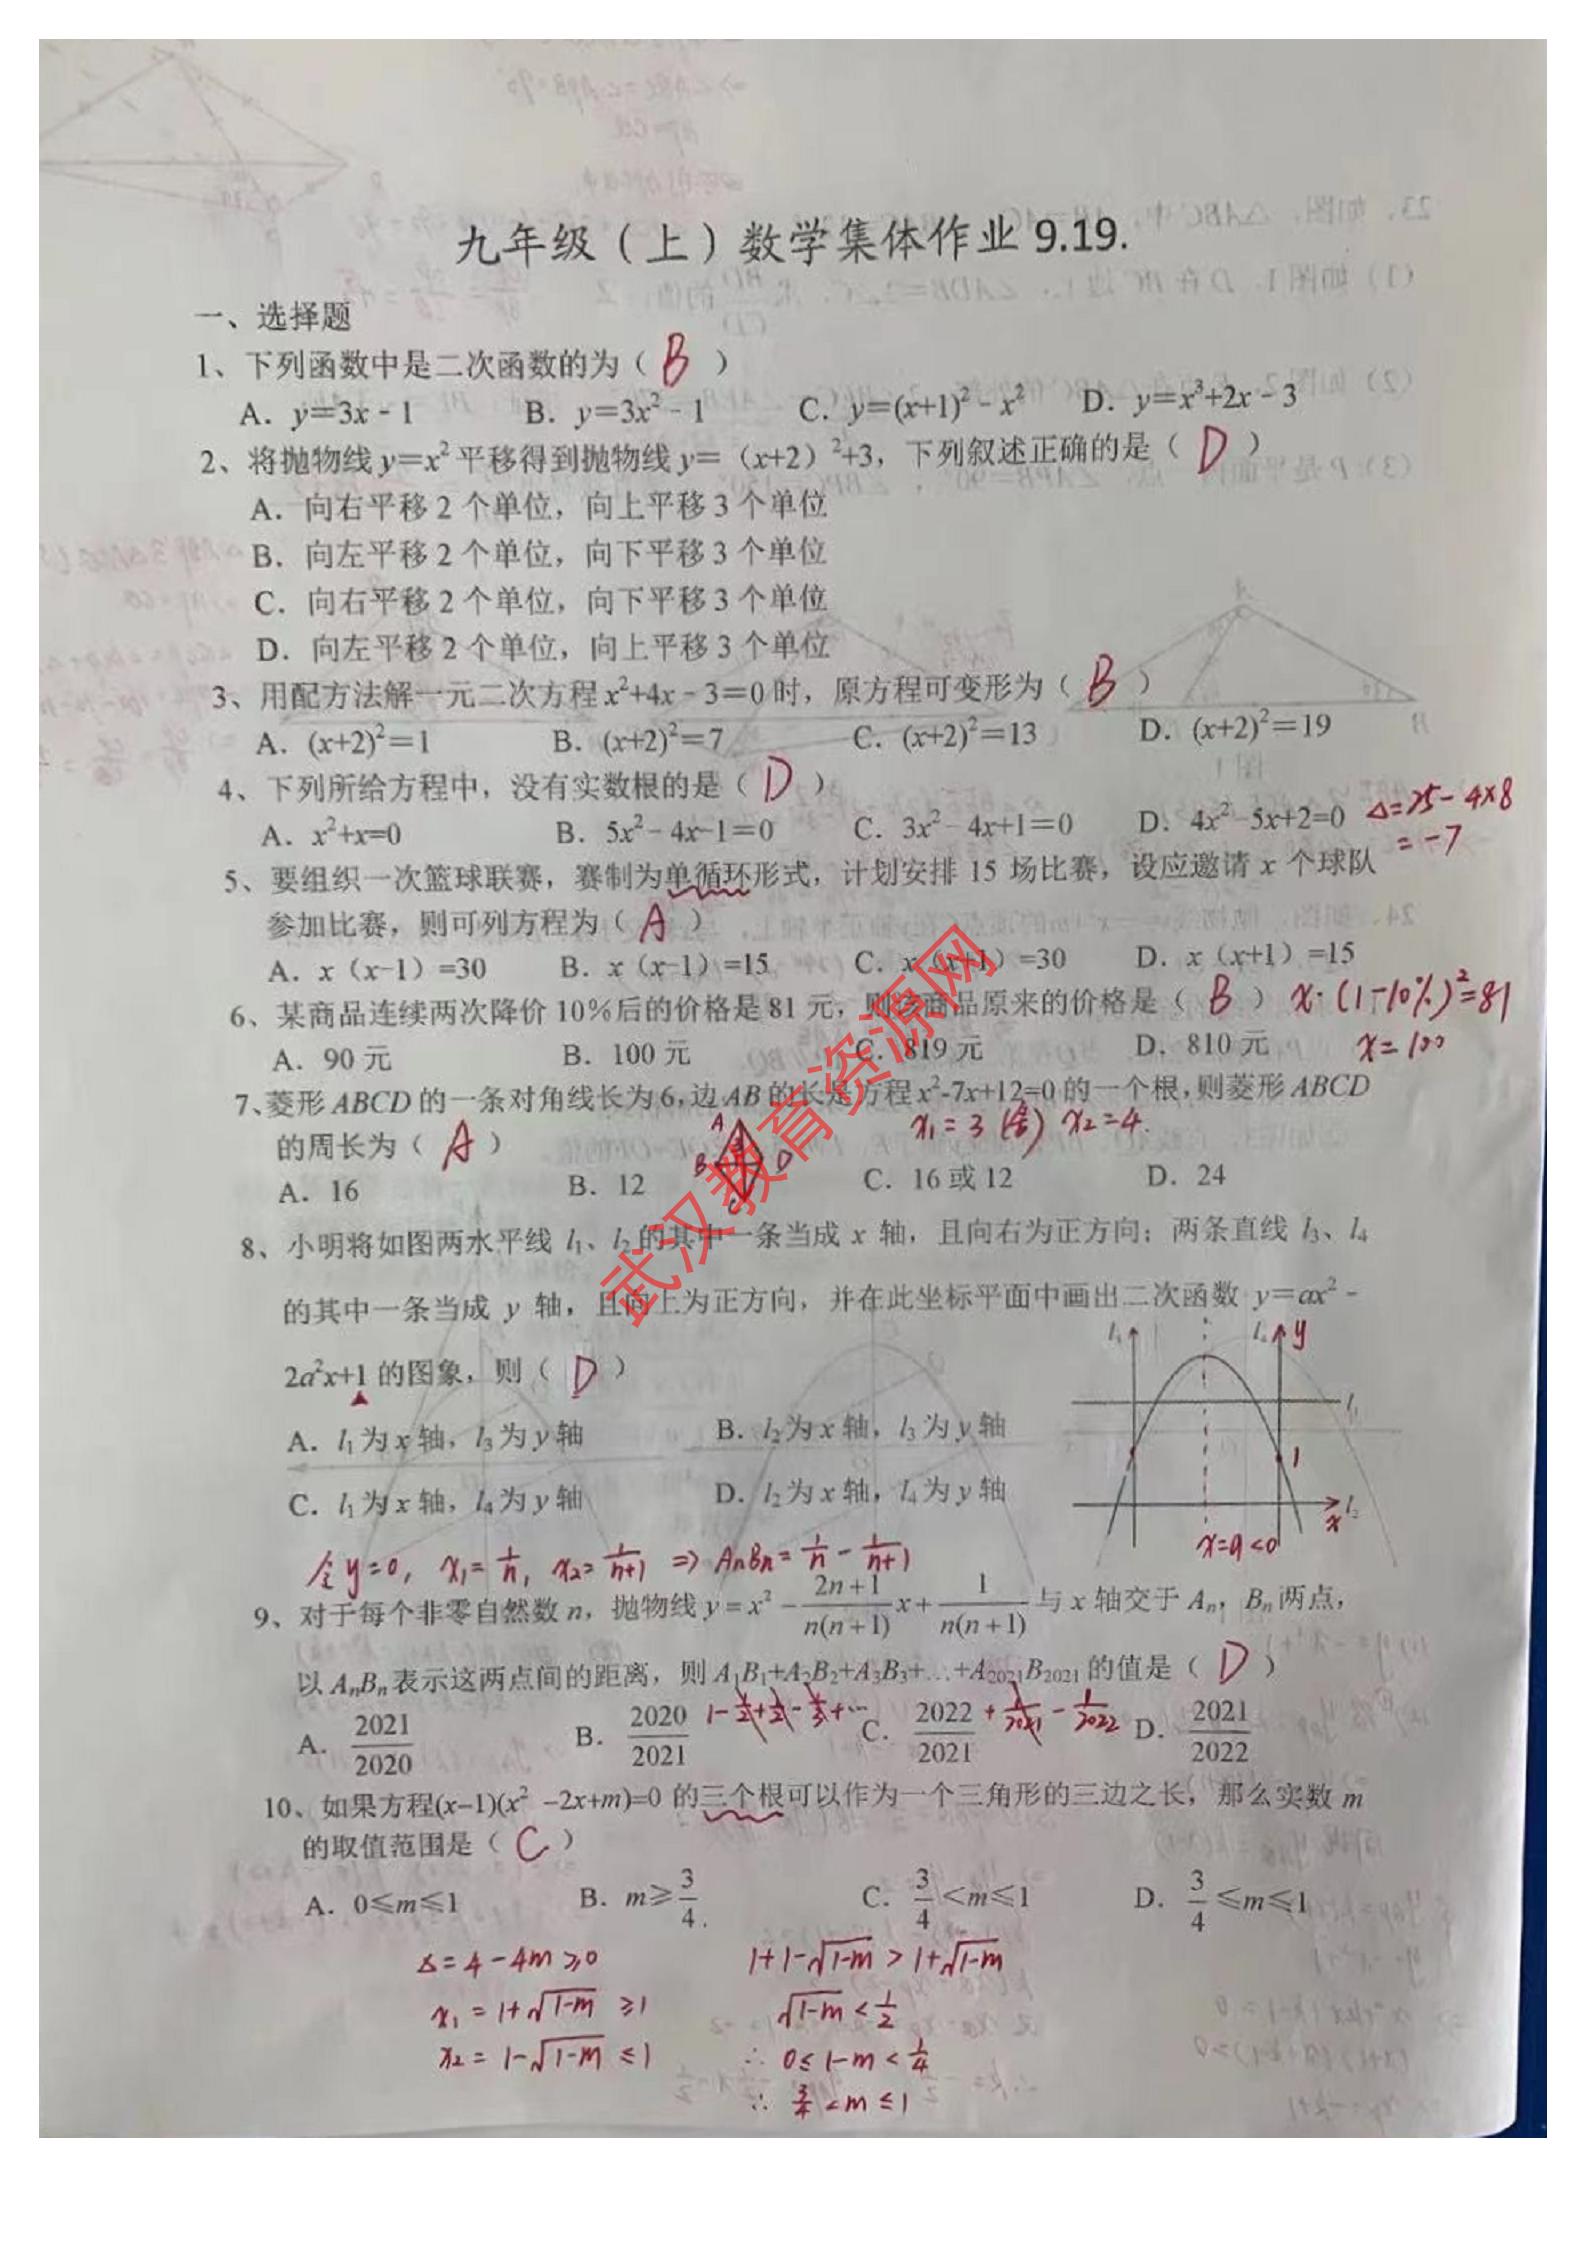 九年级（上）数学集体作业9.19.
一、选择题
1、下列函数中是二次函数的为（ B ）
A. y=3x-1 B. y=3x²-1 C. y=(x+1)²-x² D. y=x³+2x-3
2、将抛物线y=x²平移得到抛物线y=（x+2）²+3，下列叙述正确的是（ D ）
A. 向右平移2个单位，向上平移3个单位
B. 向左平移2个单位，向下平移3个单位
C. 向右平移2个单位，向下平移3个单位
D. 向左平移2个单位，向上平移3个单位
3、用配方法解一元二次方程x²+4x-3=0时，原方程可变形为（ B ）
A. (x+2)²=1 B. (x+2)²=7 C. (x+2)²=13 D. (x+2)²=19
4、下列所给方程中，没有实数根的是（ D ）
A. x²+x=0 B. 5x²-4x-1=0 C. 3x²-4x+1=0 D. 4x²-5x+2=0 Δ=25-4×8
=-7
5、要组织一次篮球联赛，赛制为单循环形式，计划安排15场比赛，设应邀请x个球队
参加比赛，则可列方程为（ A ）
A. x（x-1）=30 B. x（x-1）=15 C. x（x+1）=30 D. x（x+1）=15
6、某商品连续两次降价10%后的价格是81元，则该商品原来的价格是（ B ） x·(1-10%)²=81
A. 90元 B. 100元 C. 819元 D. 810元 x=100
7、菱形ABCD的一条对角线长为6，边AB的长是方程x²-7x+12=0的一个根，则菱形ABCD
的周长为（ A ） A B 3 D C x₁=3 (舍) x₂=4.
A. 16 B. 12 C. 16或12 D. 24
8、小明将如图两水平线l₁、l₂的其中一条当成x轴，且向右为正方向；两条直线l₃、l₄
的其中一条当成y轴，且向上为正方向，并在此坐标平面中画出二次函数y=ax²-
2a²x+1的图象，则（ D ）
A. l₁为x轴，l₃为y轴 B. l₂为x轴，l₃为y轴
C. l₁为x轴，l₄为y轴 D. l₂为x轴，l₄为y轴
l₃ l₄ y
l₁
1
l₂
x
x=a<0
令y=0, x₁=1/n, x₂=1/(n+1) ⇒ AnBn=1/n-1/(n+1)
9、对于每个非零自然数n，抛物线y=x²-(2n+1)/(n(n+1))x+1/(n(n+1))与x轴交于Aₙ，Bₙ两点，
以AₙBₙ表示这两点间的距离，则A₁B₁+A₂B₂+A₃B₃+…+A₂₀₂₁B₂₀₂₁的值是（ D ）
1-1/2+1/2-1/3+… +1/2021-1/2022
A. 2021/2020 B. 2020/2021 C. 2022/2021 D. 2021/2022
10、如果方程(x-1)(x²-2x+m)=0的三个根可以作为一个三角形的三边之长，那么实数m
的取值范围是（ C ）
A. 0≤m≤1 B. m≥3/4. C. 3/4<m≤1 D. 3/4≤m≤1
Δ=4-4m≥0 1+1-√(1-m)>1+√(1-m)
x₁=1+√(1-m)≥1 √(1-m)<1/2
x₂=1-√(1-m)≤1 ∴0≤1-m<1/4
∴3/4<m≤1
武汉教育资源网